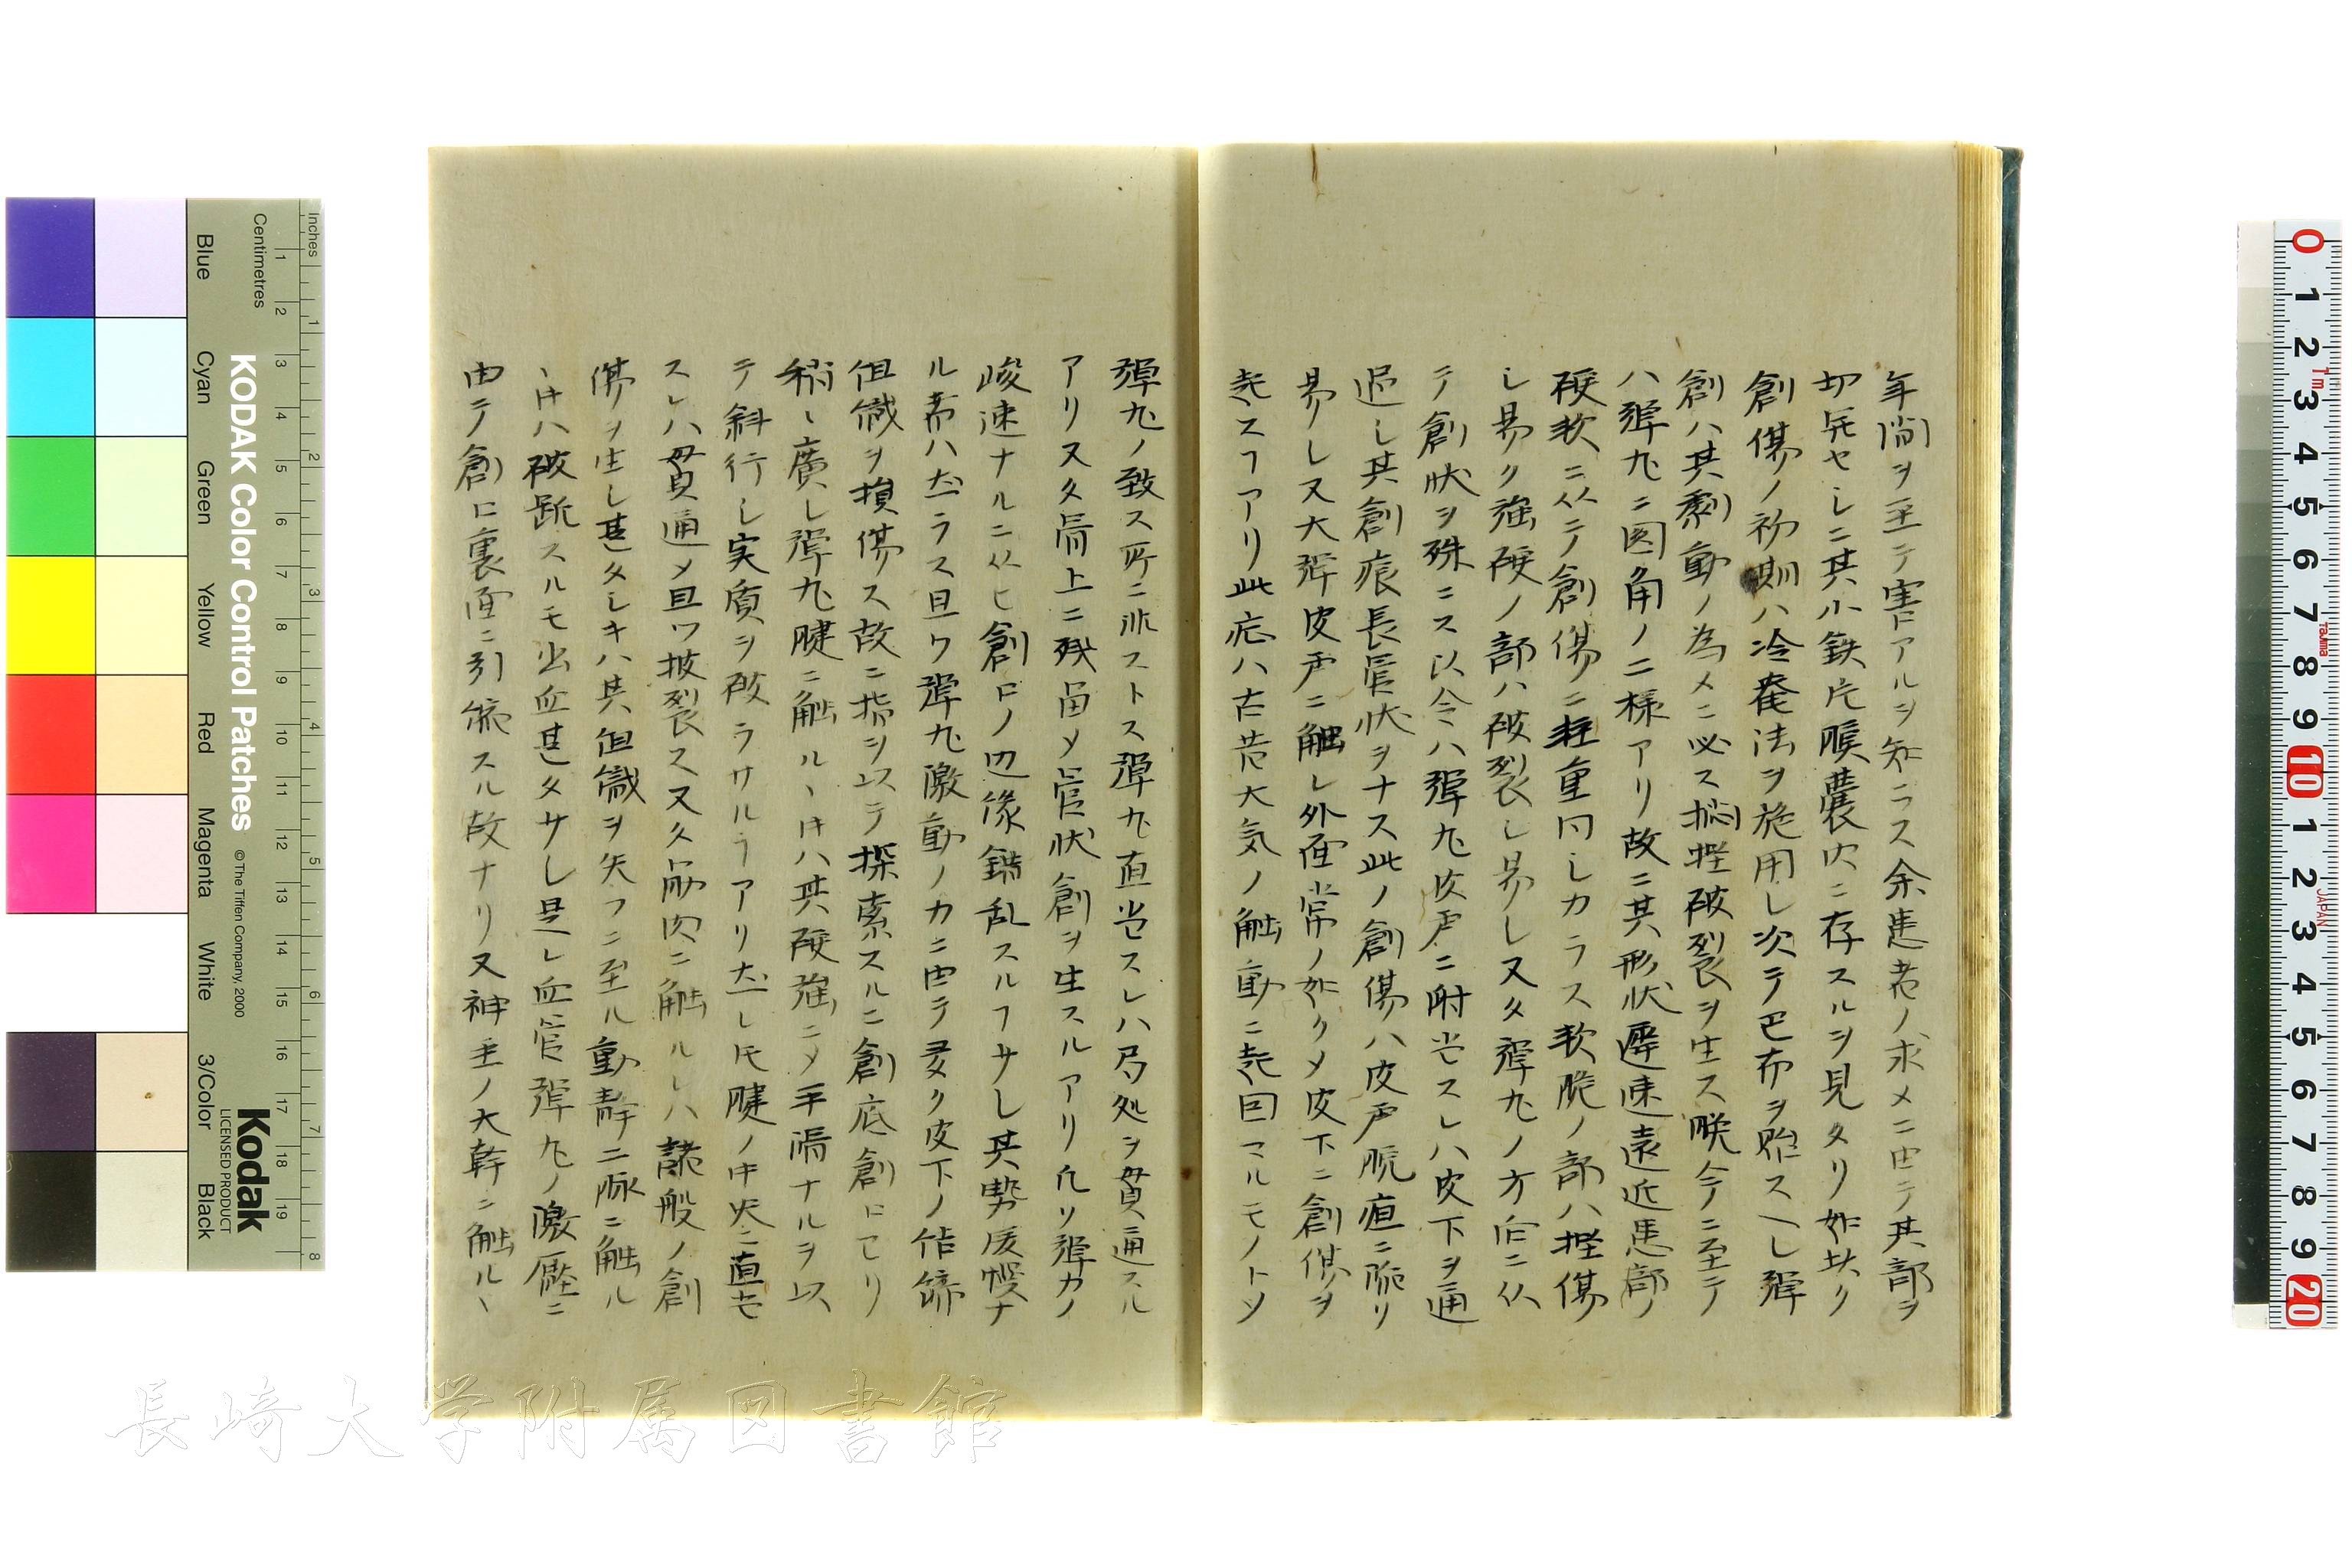 年間ヲ至テ害アルヲ知ラス余患者ノ求メニ由テ其部ヲ
切開セシニ其小鉄片膿囊内ニ存スルヲ見タリ如此ク
創傷ノ初期ハ冷罨法ヲ施用し次テ巴布ヲ貼スヘし弾
創ハ其劇動ノ為メニ必ス挫破裂ヲ生ス輓今ニ至テ
ハ弾丸ニ円角ノ二様アリ故ニ其形状遲速遠近患部ノ
硬軟ニ从テ創傷ニ軽重同しカラス軟脆ノ部ハ挫傷
し易ク強硬ノ部ハ破裂し易し又タ弾丸ノ方向ニ从
テ創状ヲ殊ニス以令ハ弾丸皮声ニ附当スレハ皮下ヲ通
過し其創痕長管状ヲナス此ノ創傷ハ皮声脱疽ニ陥リ
易し又大弾皮声ニ触し外面常ノ如クメ皮下ニ創傷ヲ
起スヿアリ此症ハ古昔大気ノ触動ニ起因スルモノトメ
弾丸ノ致ス所ニ非ストス弾丸直当スレハ局処ヲ貫通スル
アリ又タ局上ニ残留メ管状創ヲ生スルアリ凡ソ弾力ノ
峻速ナルニ从ヒ創口ノ辺縁錯乱スルヿサし其勢緩慢ナ
ル者ハ然ラス且ツ弾丸激動ノ力ニ由テ多ク皮下ノ結締
組織ヲ損傷ス故ニ指ヲ以テ探索スルニ創底創口ヨリ
稍々廣し弾丸腱ニ触ルヽ片ハ其硬強ニメ平滑ナルヲ以
テ斜行し実質ヲ破ラサルヿアリ然し圧腱ノ中央ニ直当
スレハ貫通メ且ツ披裂ス又タ筋肉ニ触ルレハ諸般ノ創
傷ヲ生し甚タしキハ其組織ヲ失フニ至ル動静二脉ニ触ル
ヽ片ハ破断スルモ出血甚タサし是レ血管弾丸ノ激壓ニ
由テ創口裏面ニ引縮スル故ナリ又神圣ノ大幹ニ触ルヽ
Inches
Centimetres
KODAK Color Control Patches
©The Tiffen Company, 2000
Kodak
LICENSED PRODUCT
Blue
Cyan
Green
Yellow
Red
Magenta
White
3/Color
Black
長崎大学附属図書館